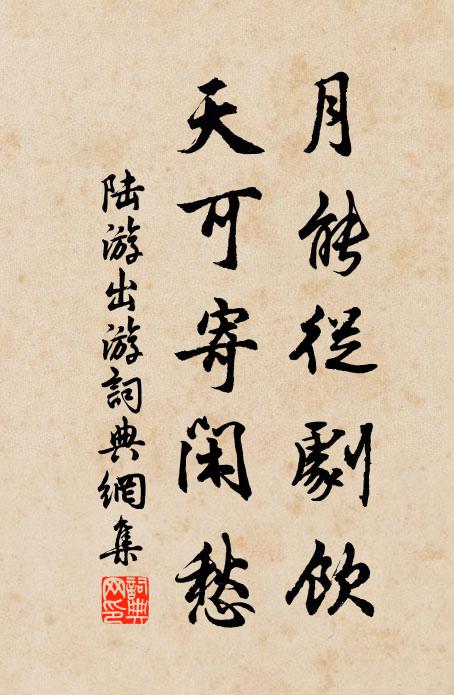 月能從劇飲
天可寄閑愁
陆游出游詞典網集
詞典网印